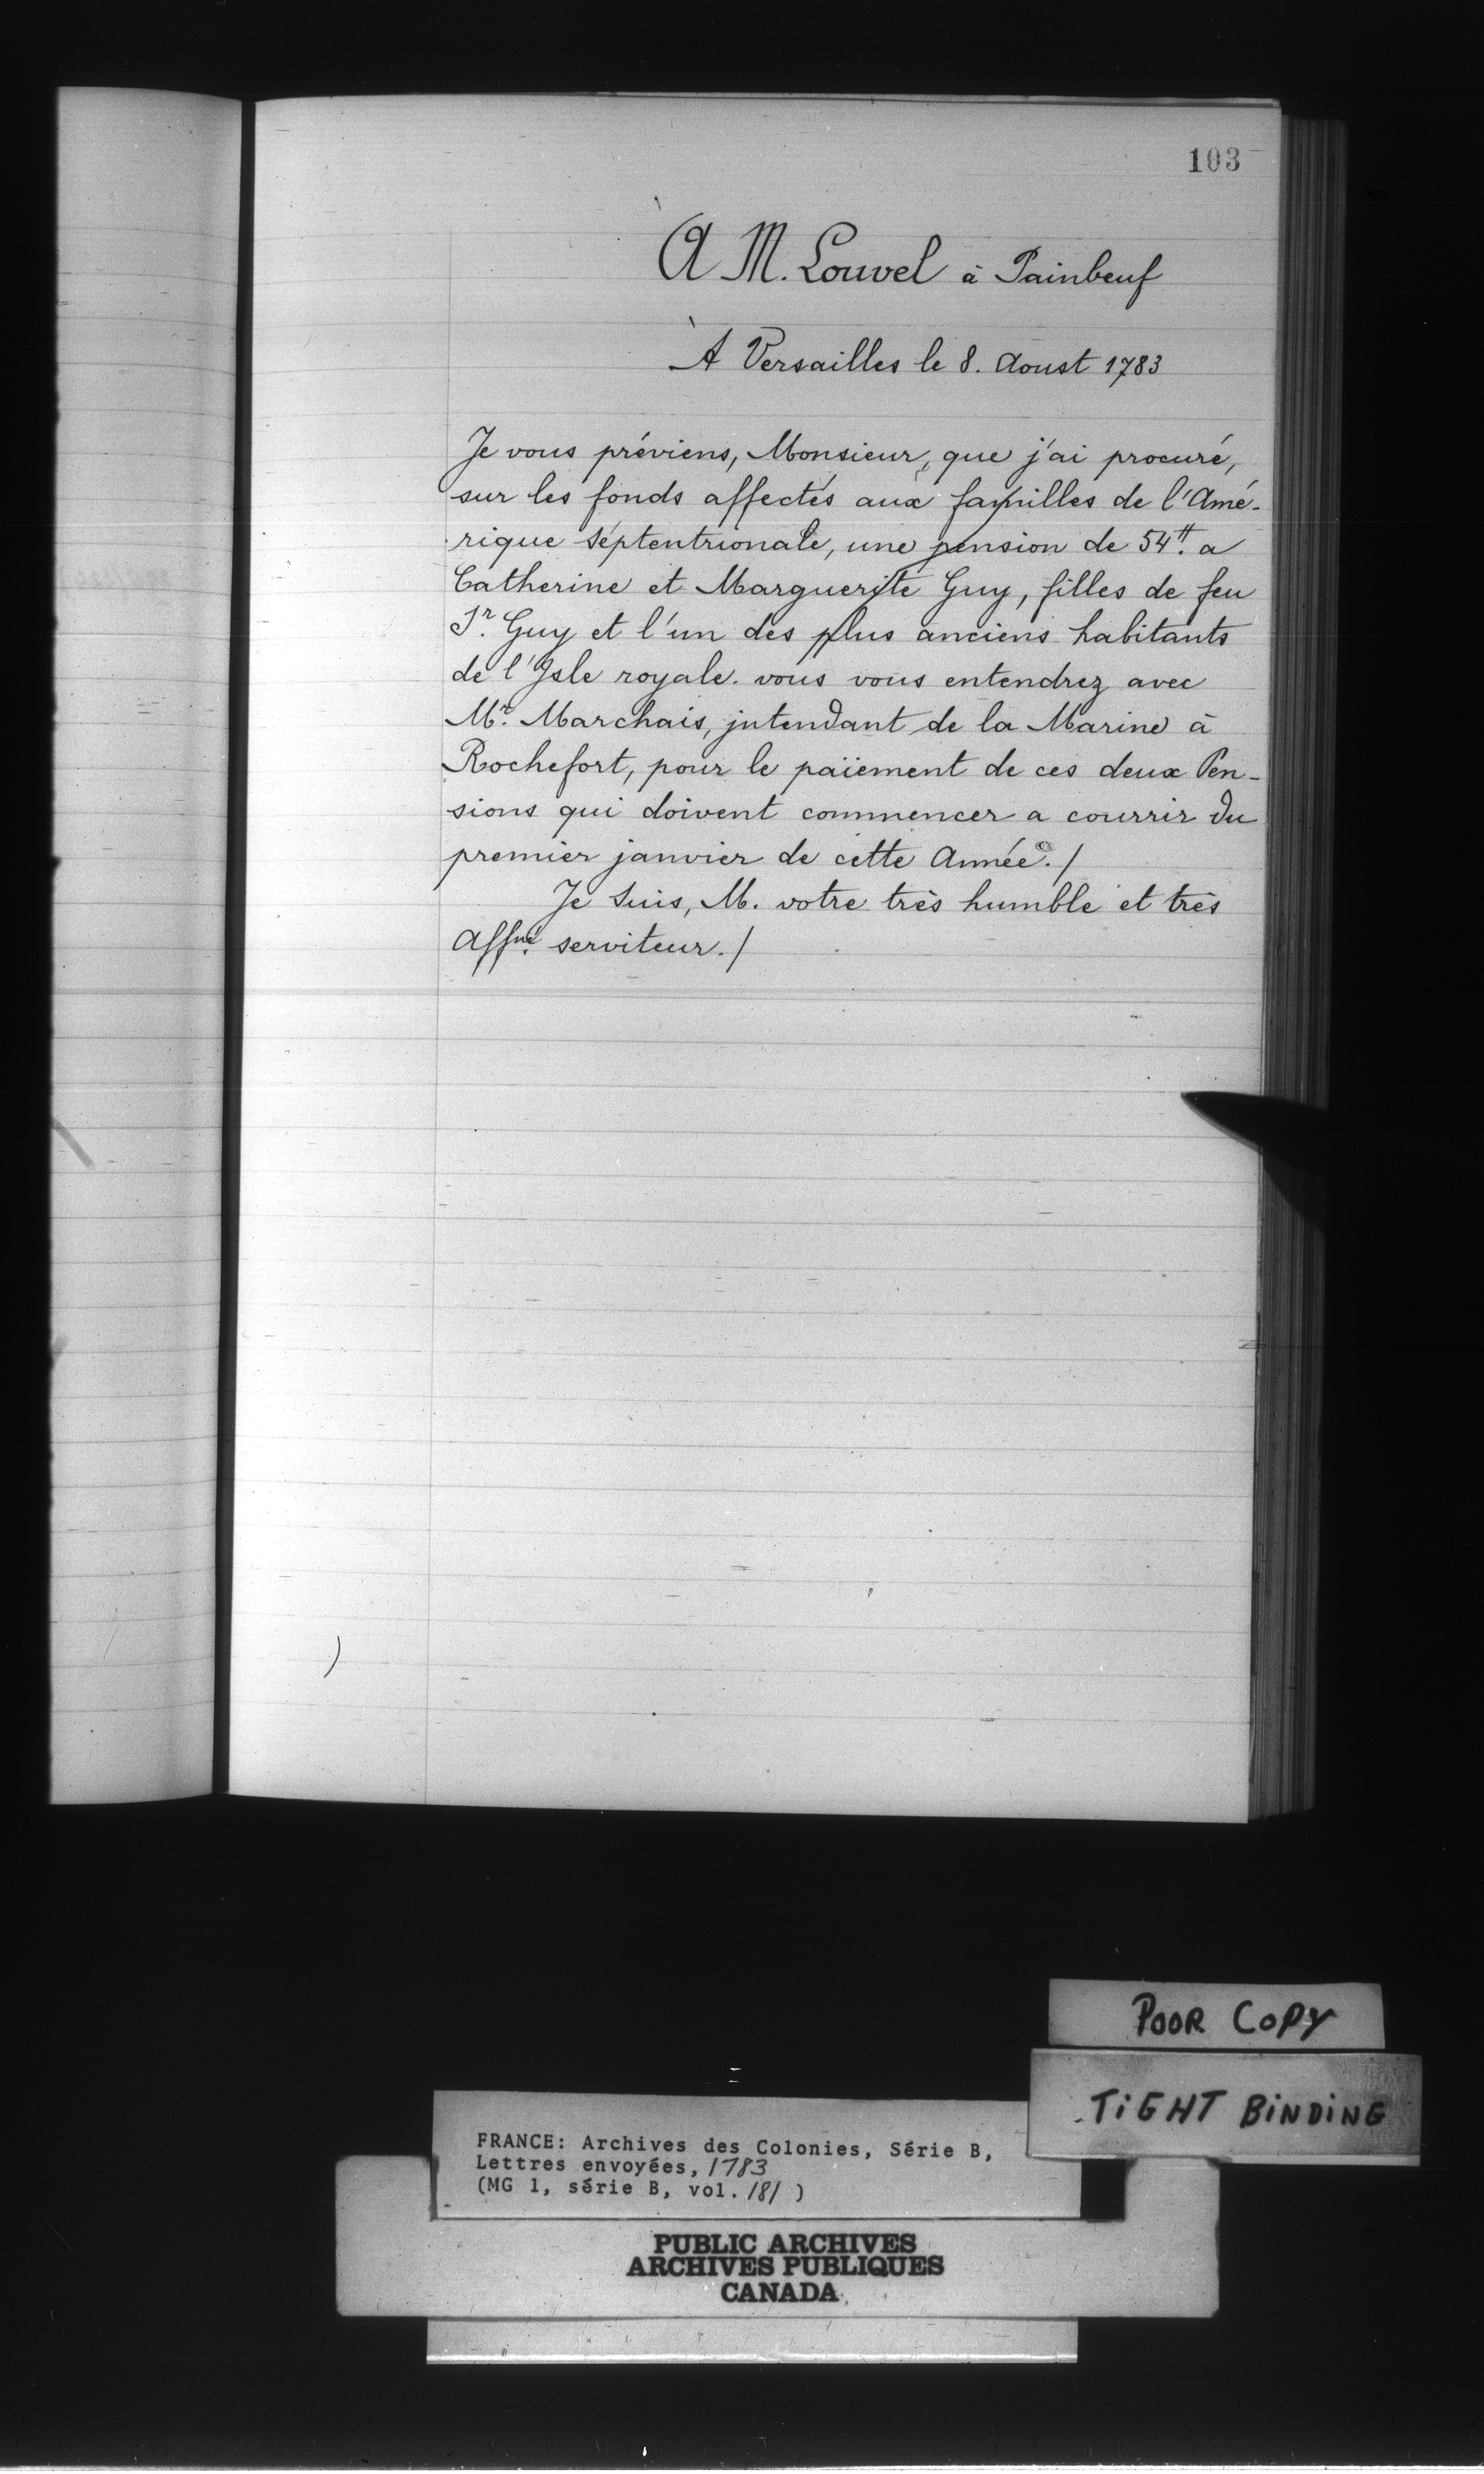 103
À M. Louvel à Painbeuf
À Versailles le 8. Aoust 1783
Je vous préviens, Monsieur, que j'ai procuré,
sur les fonds affectés aux familles de l'Amé-
rique séptentrionale, une pension de 54ᵗᵗ. a
Catherine et Marguerite Guy, filles de feu
Sʳ. Guy et l'un des plus anciens habitants
de l'Isle royale. vous vous entendrez avec
Mʳ. Marchais, jntendant de la Marine à
Rochefort, pour le païement de ces deux Pen-
sions qui doivent commencer a courrir du
premier janvier de cette Année. /
Je suis, M. votre très humble et très
Affⁿé. serviteur. /
POOR COPY
TIGHT BINDING
FRANCE: Archives des Colonies, Série B,
Lettres envoyées, 1783
(MG 1, série B, vol. 181 )
PUBLIC ARCHIVES
ARCHIVES PUBLIQUES
CANADA